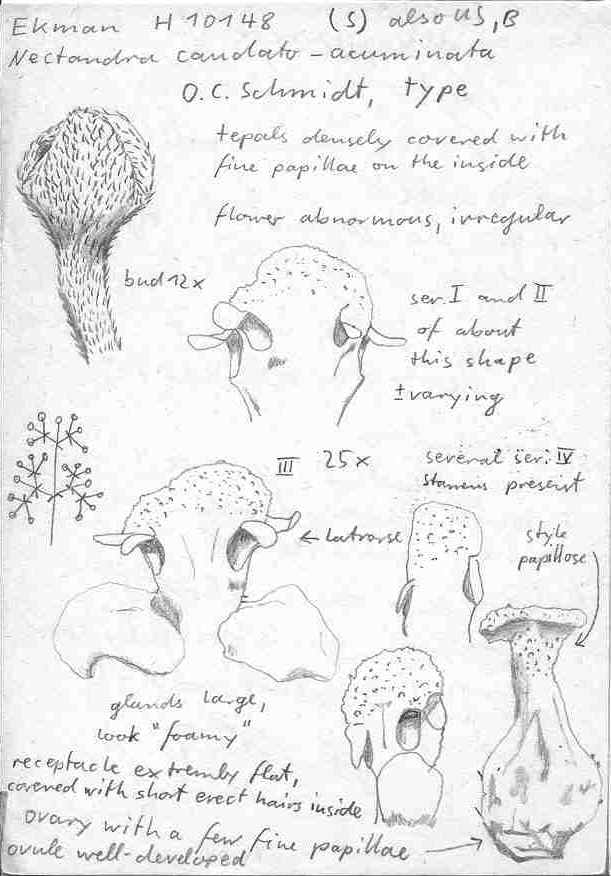 Ekman H 10148 (S) also US, B
Nectandra caudato-acuminata
O.C. Schmidt, type
tepals densely covered with
fine papillae on the inside
flower abnormous, irregular
bud 12x
ser. I and II
of about
this shape
± varying
III 25x
several ser. IV
stamens present
← latrorse
style
papillose
glands large,
look "foamy"
receptacle extremly flat,
covered with short erect hairs inside
ovary with a few fine papillae
ovule well-developed